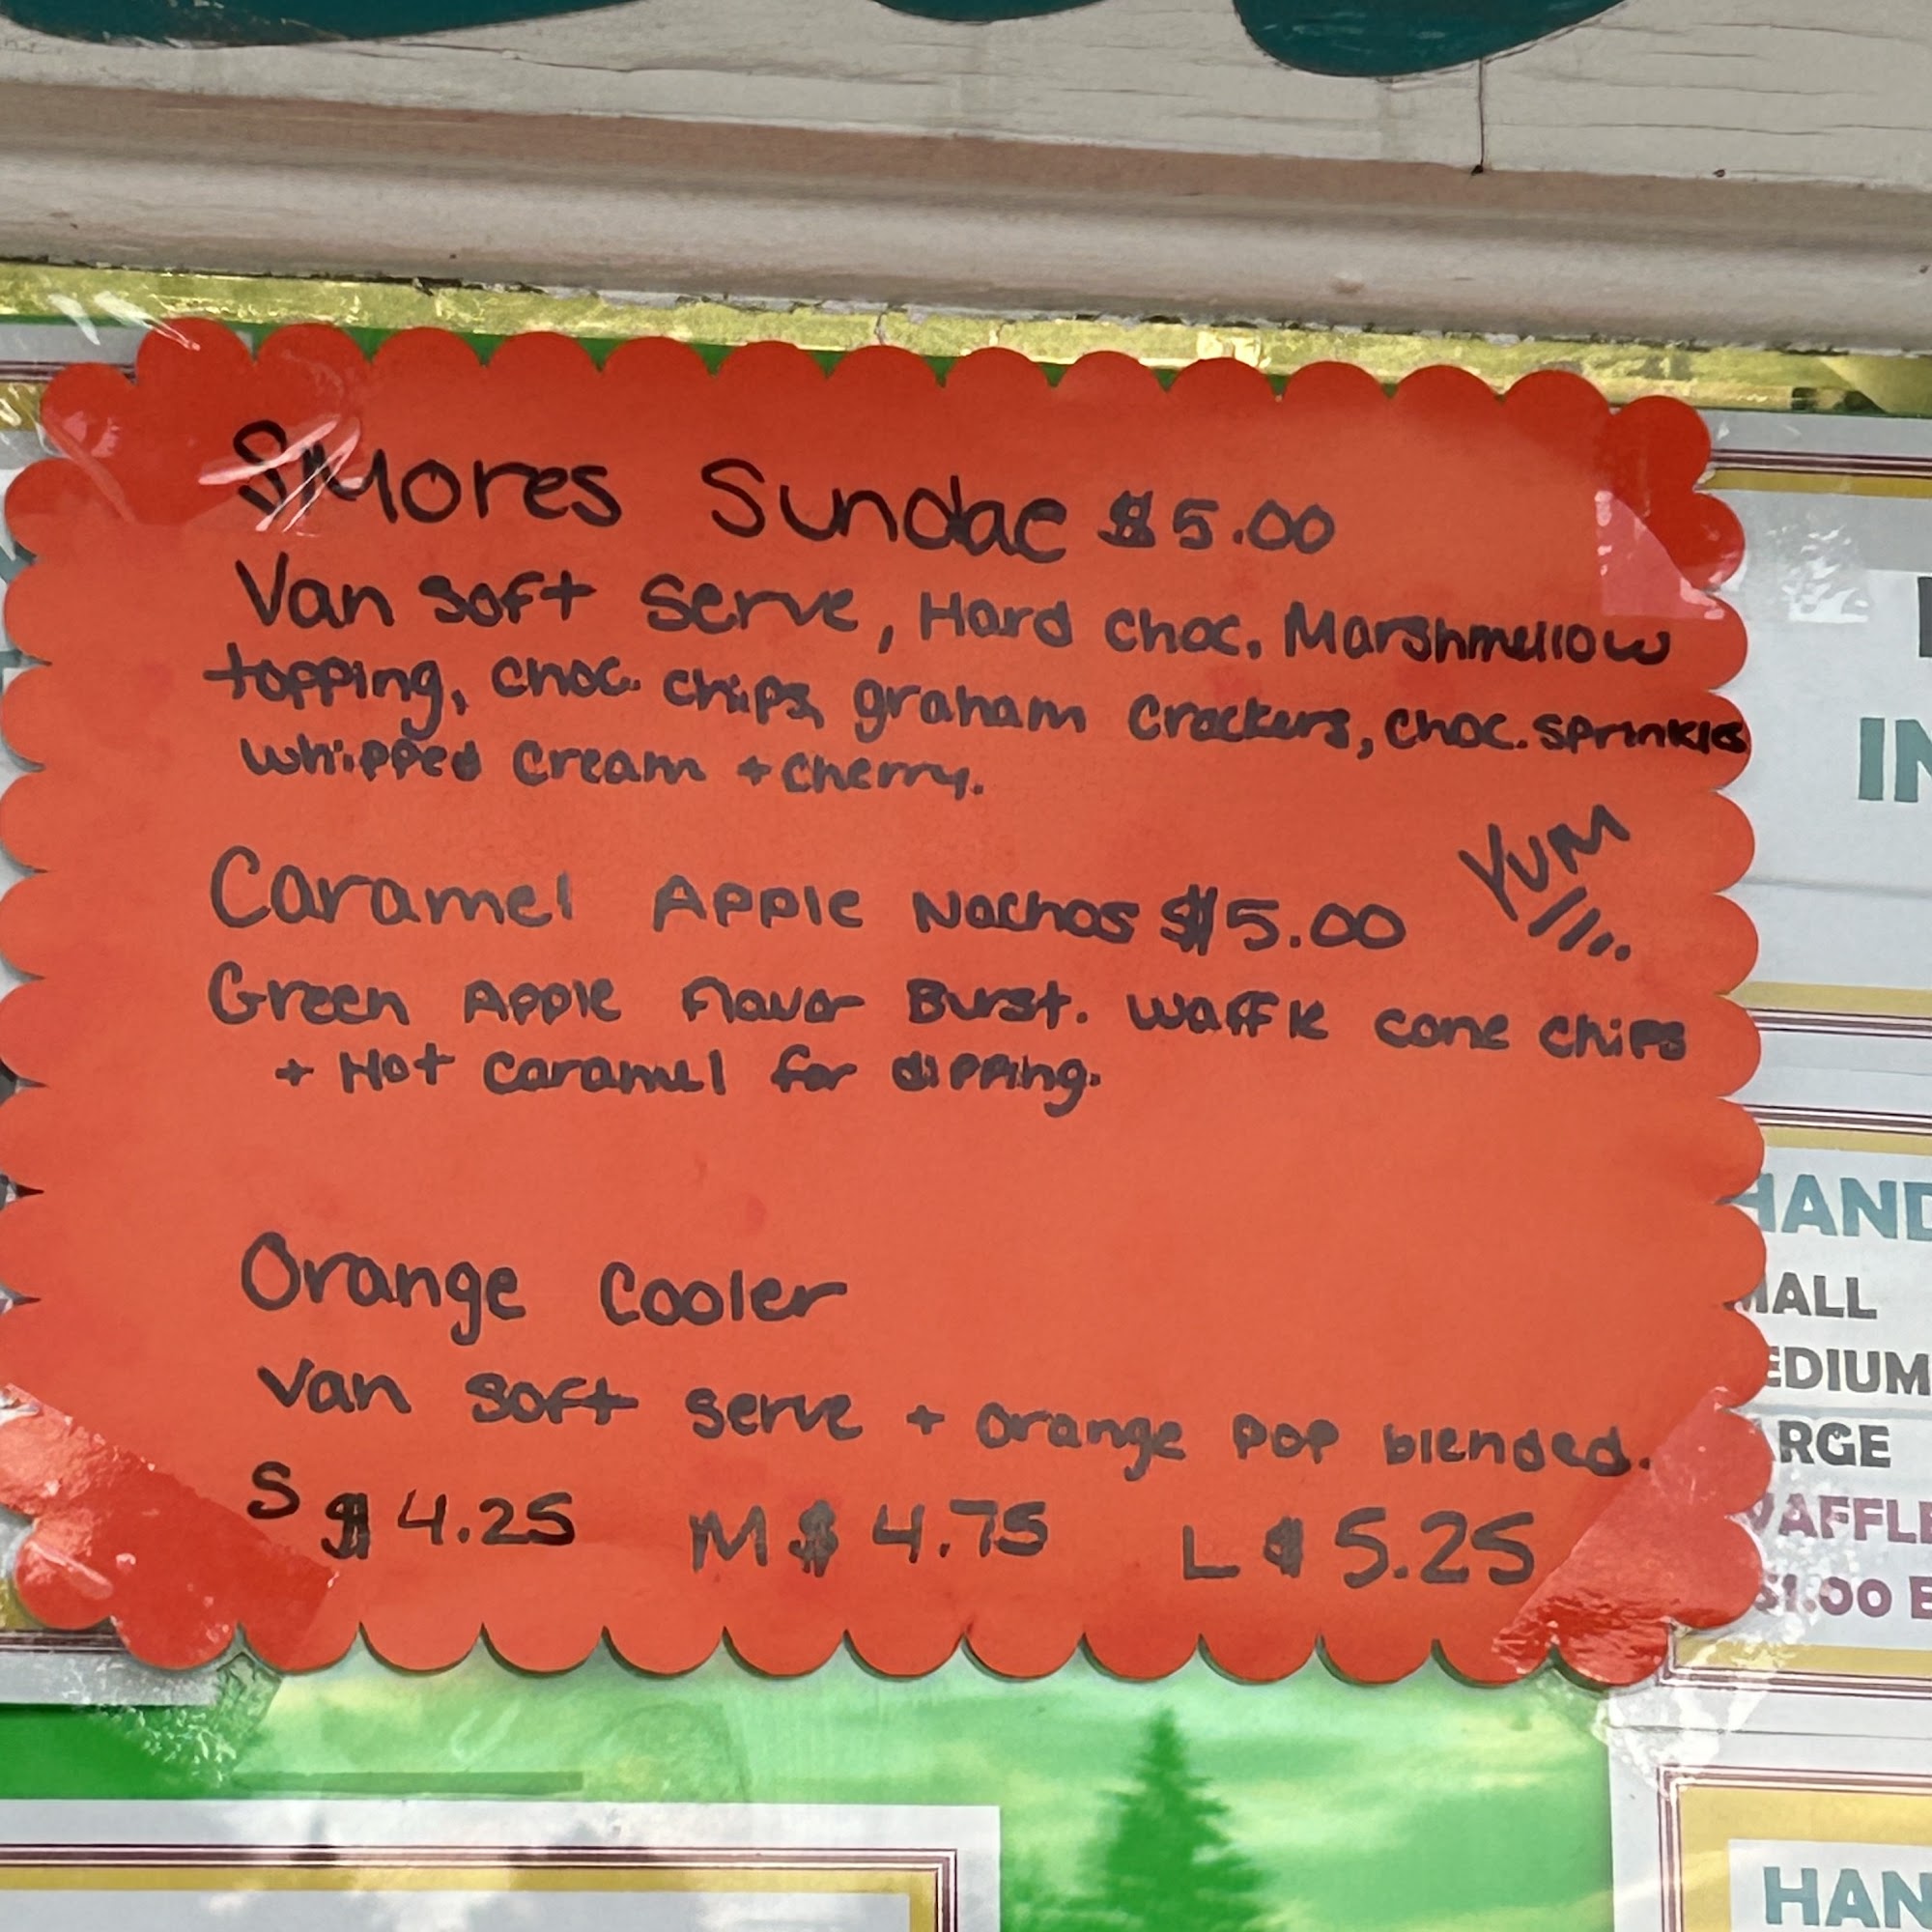 SMores Sundae $5.00
Van soft serve, Hard choc. Marshmellow
topping, choc. chips, graham crackers, choc. sprinkles
whipped cream + cherry.
YUM
Caramel Apple Nachos $5.00
Green Apple flavor Burst. waffle cone chips
+ Hot caramel for dipping.
Orange Cooler
Van soft serve + orange pop blended.
S $4.25 M $4.75 L $5.25
IN
HAND
MALL
EDIUM
ARGE
WAFFLE
$1.00 E
HAN